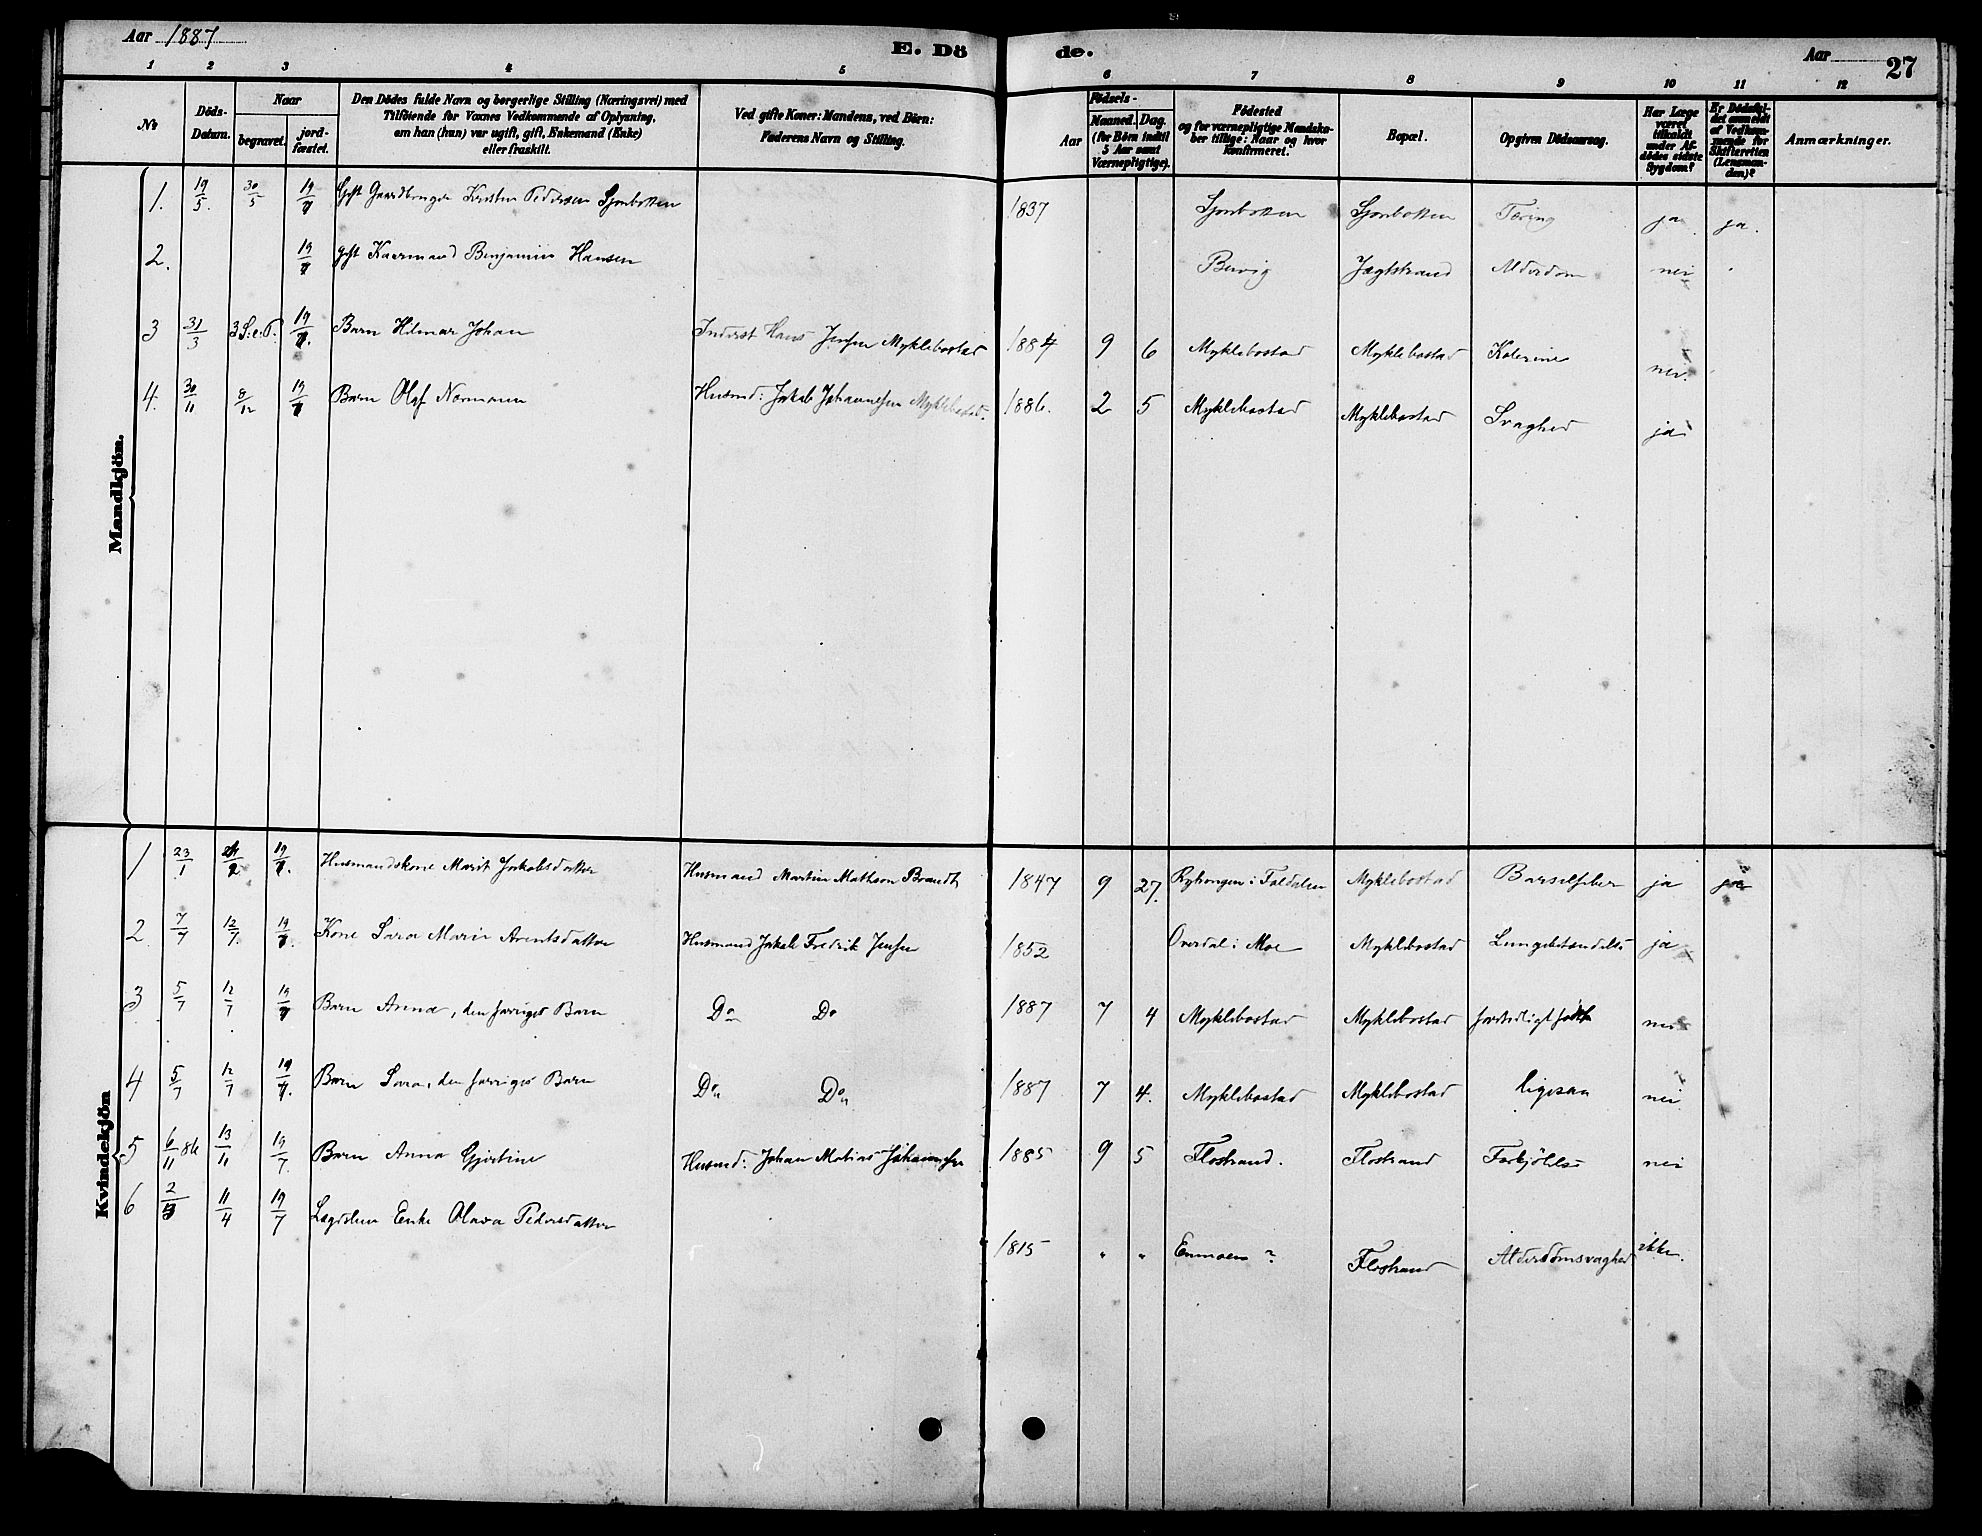 Aar 1887 E. Dö de. Aar 27
1 2 3 4 5 6 7 8 9 10 11 12
No Döds-Datum. Naar begravet. jord-fæstet. Den Dödes fulde Navn og borgerlige Stilling (Næringsvei) med Tilföiende for Voxnes Vedkommende af Oplysning, om han (hun) var ugift, gift, Enkemand (Enke) eller fraskilt. Ved gifte Koner: Mandens, ved Börn: Faderens Navn og Stilling. Födsels- Aar Maaned. Dag. (for Börn indtil 5 Aar samt Værnepligtige). Födested og for værnepligtige Mandska-ber tillige: Naar og hvor konfirmeret. Bopæl. Opgiven Dödsaarsag. Har Læge været tilkaldt under Af-dödes sidste Sygdom? Er Dödsfal-det anmeldt af Vedkom-mende for Skifteretten (Lensman-den)? Anmærkninger.
Mandkjön.
1. 19/5. 30/5 19/7 Gift Gaardbruger Kristen Pedersen Sjonbotten 1837 Sjonbotten Sjonbotten Tæring ja ja.
2. 19/7 gift Kaarmand Benjamin Hansen Jægtstrand Alderdom nei
3 31/3 3 S. e. P. 19/7. Barn Hilmar Johan Inderst Hans Jensen Myklebostad 1884 9 6 Myklebostad Myklebostad Kolerine nei.
4. 30/11 8/12 19/7 Barn Olaf Normann Husmd: Jakob Johannesen Myklebostad. 1886. 2 5 Myklebostad Myklebostad Svaghed ja
Kvindekjön
1 23/1 19/7. Husmandskone Marit Jakobsdatter Husmand Martin Mathson Brandt 1847 9 27. Myklebostad Barselfeber ja ja
2 7/7 12/7 19/7. Kone Sara Marie Arentsdatter Husmand Jakob Fredrik Jensen 1852 Overdal i Moe Myklebostad Lungebetændelse ja
3 5/7 12/7 19/7 Barn Anna, den forriges Barn Do Do 1887 7 4 Myklebostad Myklebostad fortidligt født nei
4 5/7 12/7 19/7. Barn Sara, den forriges Barn Do Do 1887 7 4. Myklebostad Myklebostad ligesaa nei
5 6/11 86 13/11 19/7 Barn Anna Gjertine Husmd: Johan Matias Johannesen 1885 9 5 Flostrand. Flostrand Forkjölelse nei
6 2/3 11/4 19/7 Lægdslem Enke Olava Pedersdatter 1815 " " Enmoen ? Flostrand Alderdomsvaghed ikke.